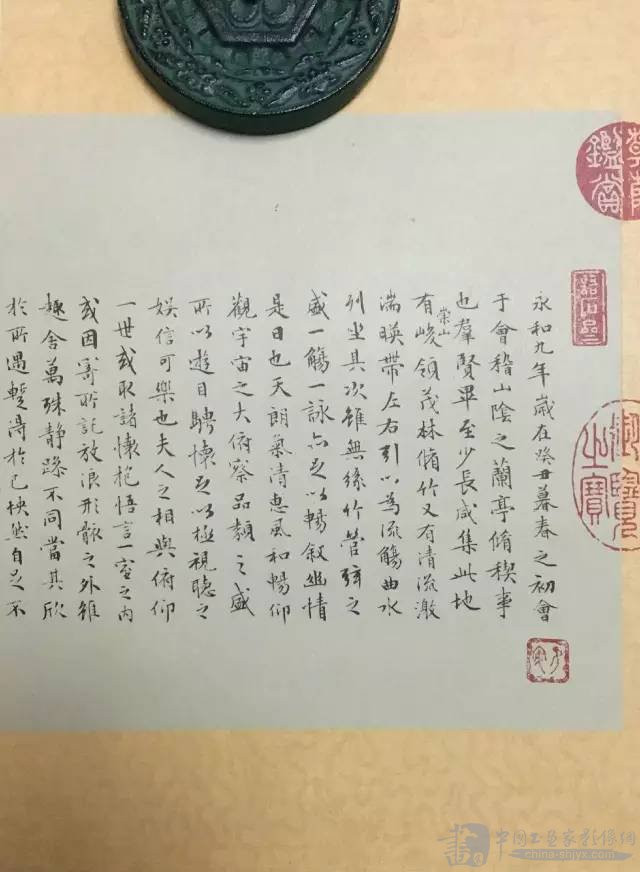 永和九年歲在癸丑暮春之初會
于會稽山陰之蘭亭脩稧事
也羣賢畢至少長咸集此地
有崇山峻領茂林脩竹又有清流激
湍暎帶左右引以為流觴曲水
列坐其次雖無絲竹管弦之
盛一觴一詠亦足以暢敘幽情
是日也天朗氣清惠風和暢仰
觀宇宙之大俯察品類之盛
所以遊目騁懷足以極視聽之
娛信可樂也夫人之相與俯仰
一世或取諸懷抱悟言一室之內
或因寄所託放浪形骸之外雖
趣舍萬殊靜躁不同當其欣
於所遇蹔得於己怏然自足不
鑑賞
御覽之寶